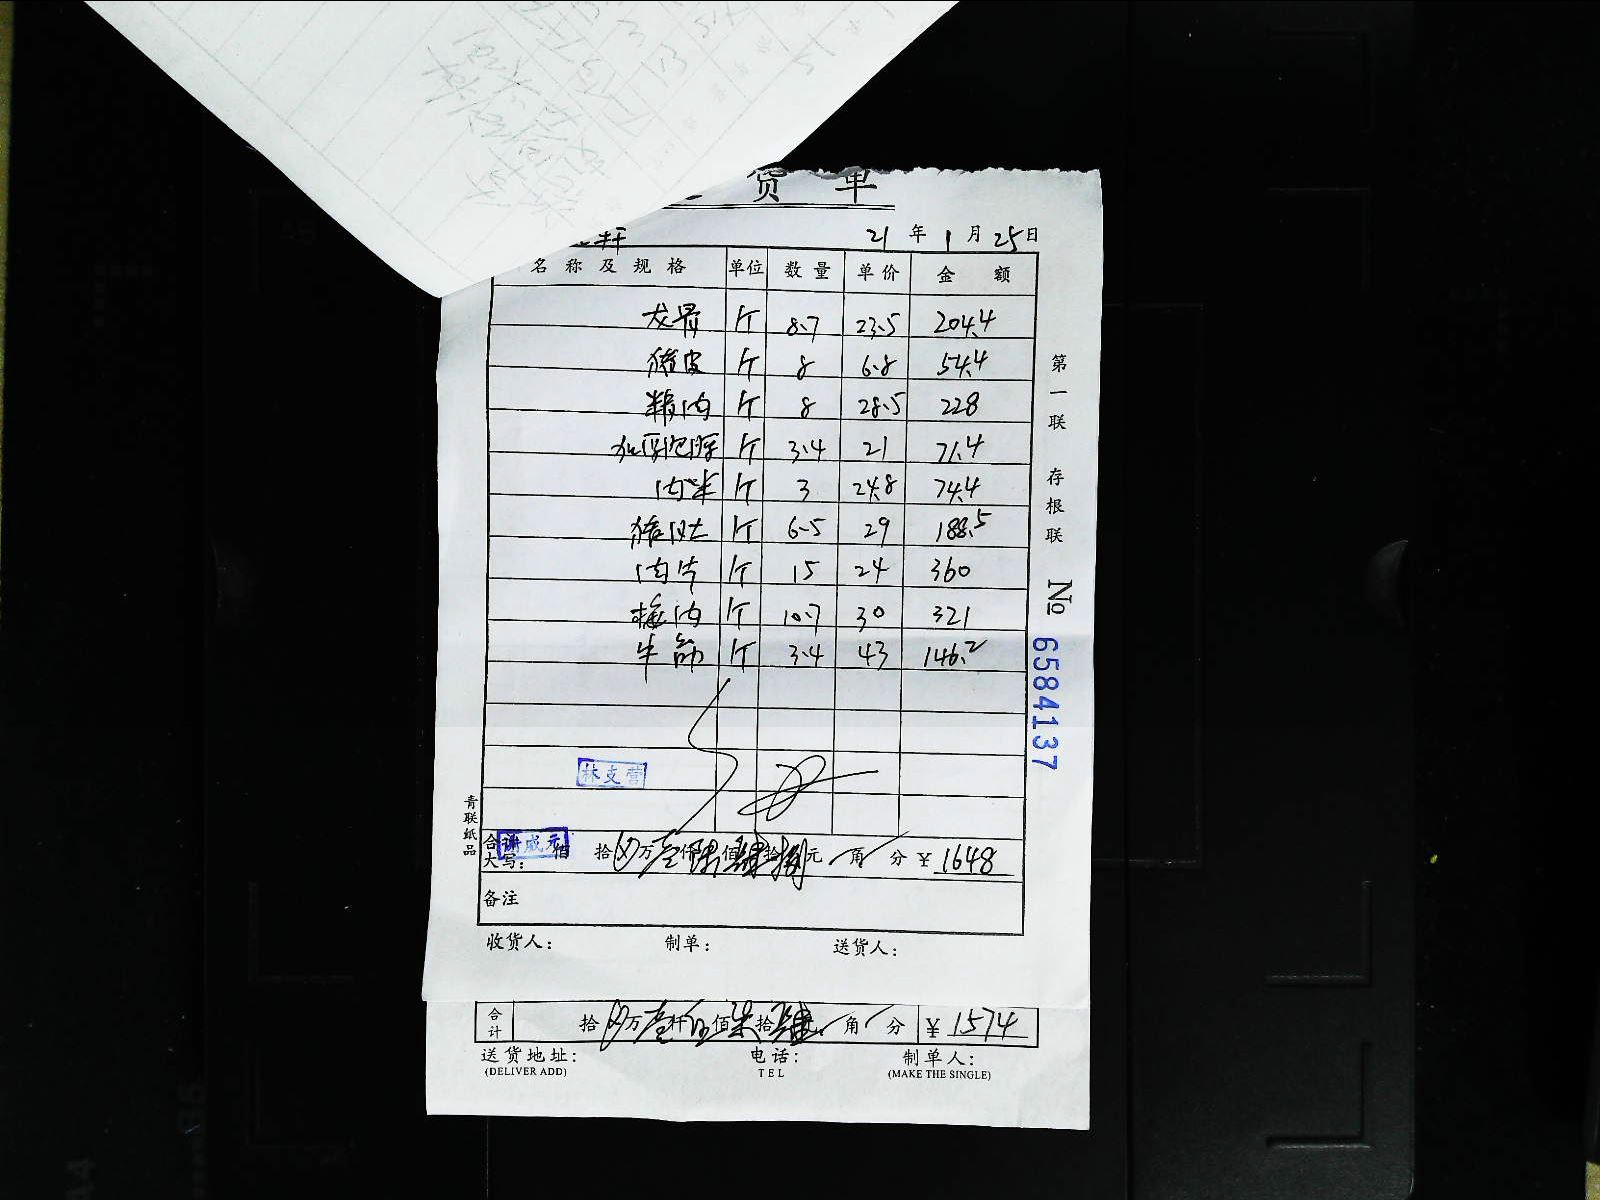 货 单
21 年 1 月 25 日
名 称 及 规 格 单位 数 量 单 价 金 额
龙骨 斤 8.7 23.5 204.4
猪皮 斤 8 6.8 54.4
精肉 斤 8 28.5 228
斤 3.4 21 71.4
肉米 斤 3 24.8 74.4
猪肚 斤 6.5 29 188.5
肉片 斤 15 24 360
梅肉 斤 10.7 30 321
牛筋 斤 3.4 43 146.2
第一联 存根联
№ 6584137
林支营
青联纸品
谢成元
合 大写: 佰 拾 万壹仟陆佰肆拾捌元 角 分 ¥ 1648
备注
收货人: 制单: 送货人:
合计 拾 万壹仟伍佰柒拾肆元 角 分 ¥ 1574
送货地址: 电话: 制单人:
(DELIVER ADD) TEL (MAKE THE SINGLE)